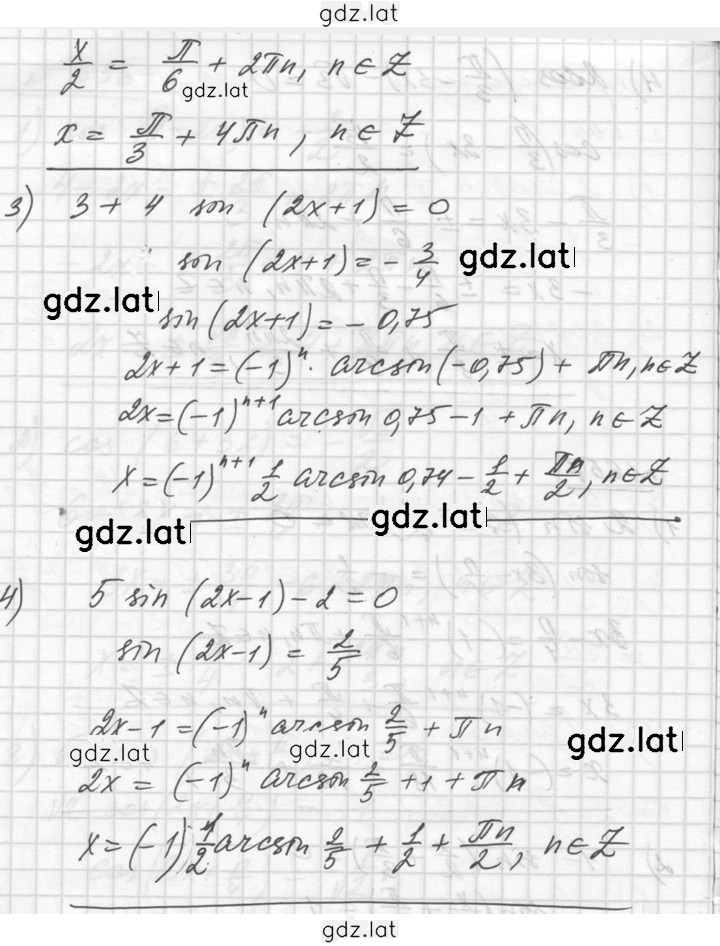 gdz.lat
x/2 = π/6 + 2πn, n ∈ Z
gdz.lat
x = π/3 + 4πn, n ∈ Z
3) 3 + 4 sin (2x+1) = 0
sin (2x+1) = - 3/4 gdz.lat
gdz.lat
sin (2x+1) = - 0,75
2x + 1 = (-1)ⁿ · arcsin(-0,75) + πn, n ∈ Z
2x = (-1)ⁿ⁺¹ arcsin 0,75 - 1 + πn, n ∈ Z
x = (-1)ⁿ⁺¹ 1/2 arcsin 0,74 - 1/2 + πn/2, n ∈ Z
gdz.lat gdz.lat
4) 5 sin (2x-1) - 2 = 0
sin (2x-1) = 2/5
2x - 1 = (-1)ⁿ arcsin 2/5 + πn
gdz.lat gdz.lat gdz.lat
2x = (-1)ⁿ arcsin 2/5 + 1 + πn
x = (-1) 1/2 arcsin 2/5 + 1/2 + πn/2, n ∈ Z
gdz.lat